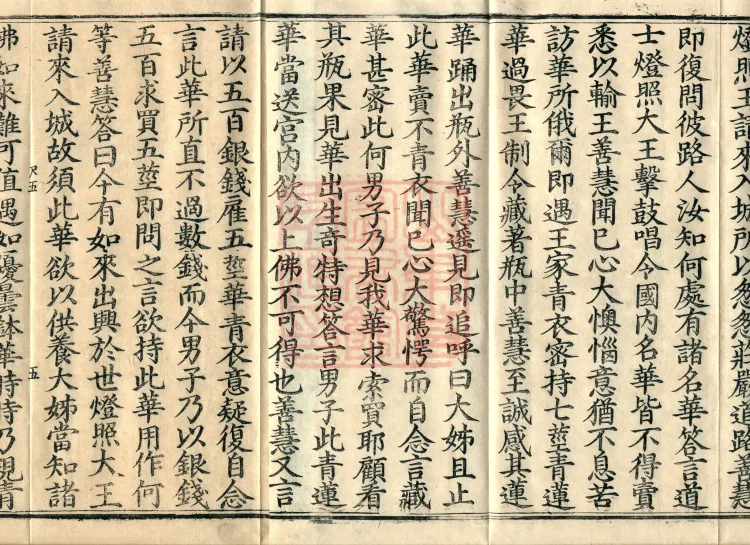 燈照王請來入城所以怱怱莊嚴道路善慧
即復問彼路人汝知何處有諸名華答言道
士燈照大王擊鼓唱令國內名華皆不得賣
悉以輸王善慧聞已心大懊惱意猶不息苦
訪華所俄爾即遇王家青衣密持七莖青蓮
華過畏王制令藏著瓶中善慧至誠感其蓮
華踊出瓶外善慧遥見即追呼曰大姊且止
此華賣不青衣聞已心大驚愕而自念言藏
華甚密此何男子乃見我華求索買耶顧看
其瓶果見華出生奇特想答言男子此青蓮
華當送宮內欲以上佛不可得也善慧又言
請以五百銀錢雇五莖華青衣意疑復自念
言此華所直不過數錢而今男子乃以銀錢
五百求買五莖即問之言欲持此華用作何
等善慧答曰今有如來出興於世燈照大王
請來入城故須此華欲以供養大姊當知諸
尺五 五
佛如來難可值遇如優曇鉢華時時乃青